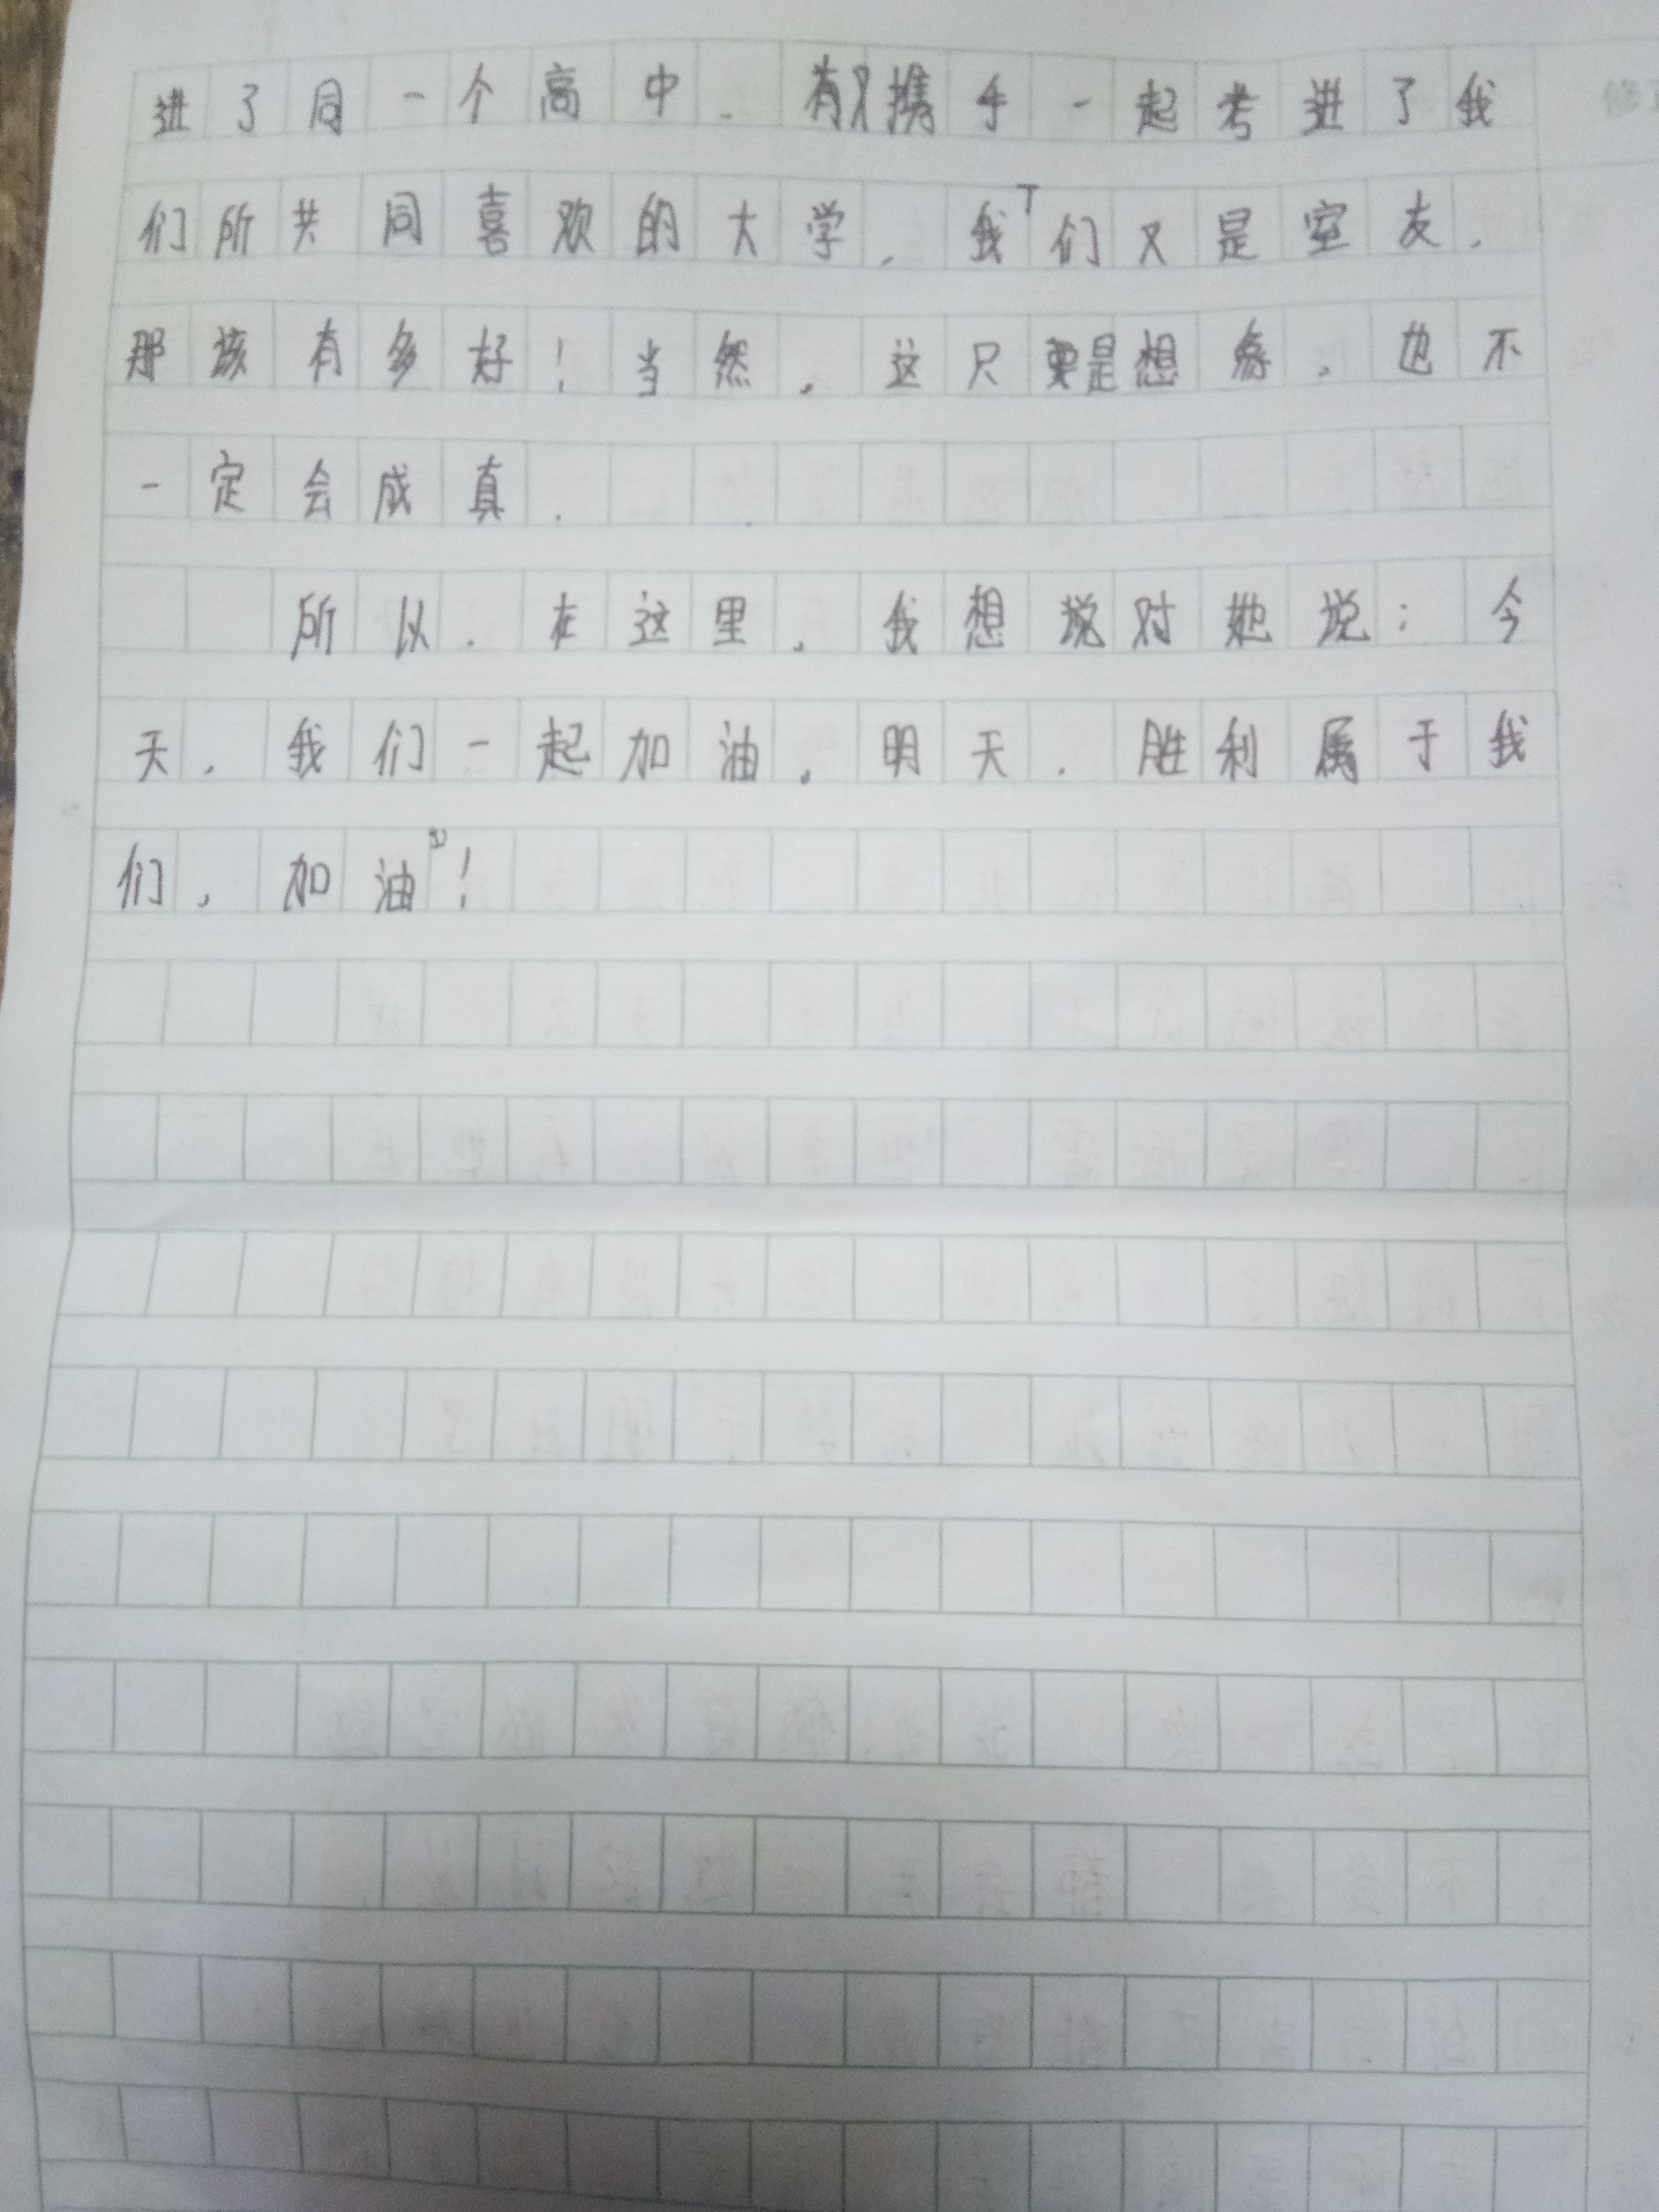 进了同一个高中，有又携手一起考进了我
们所共同喜欢的大学，我们又是室友，
那该有多好！当然，这只要是想练，也不
一定会成真．
所以，在这里，我想说对她说：今
天，我们一起加油，明天，胜利属于我
们，加油！